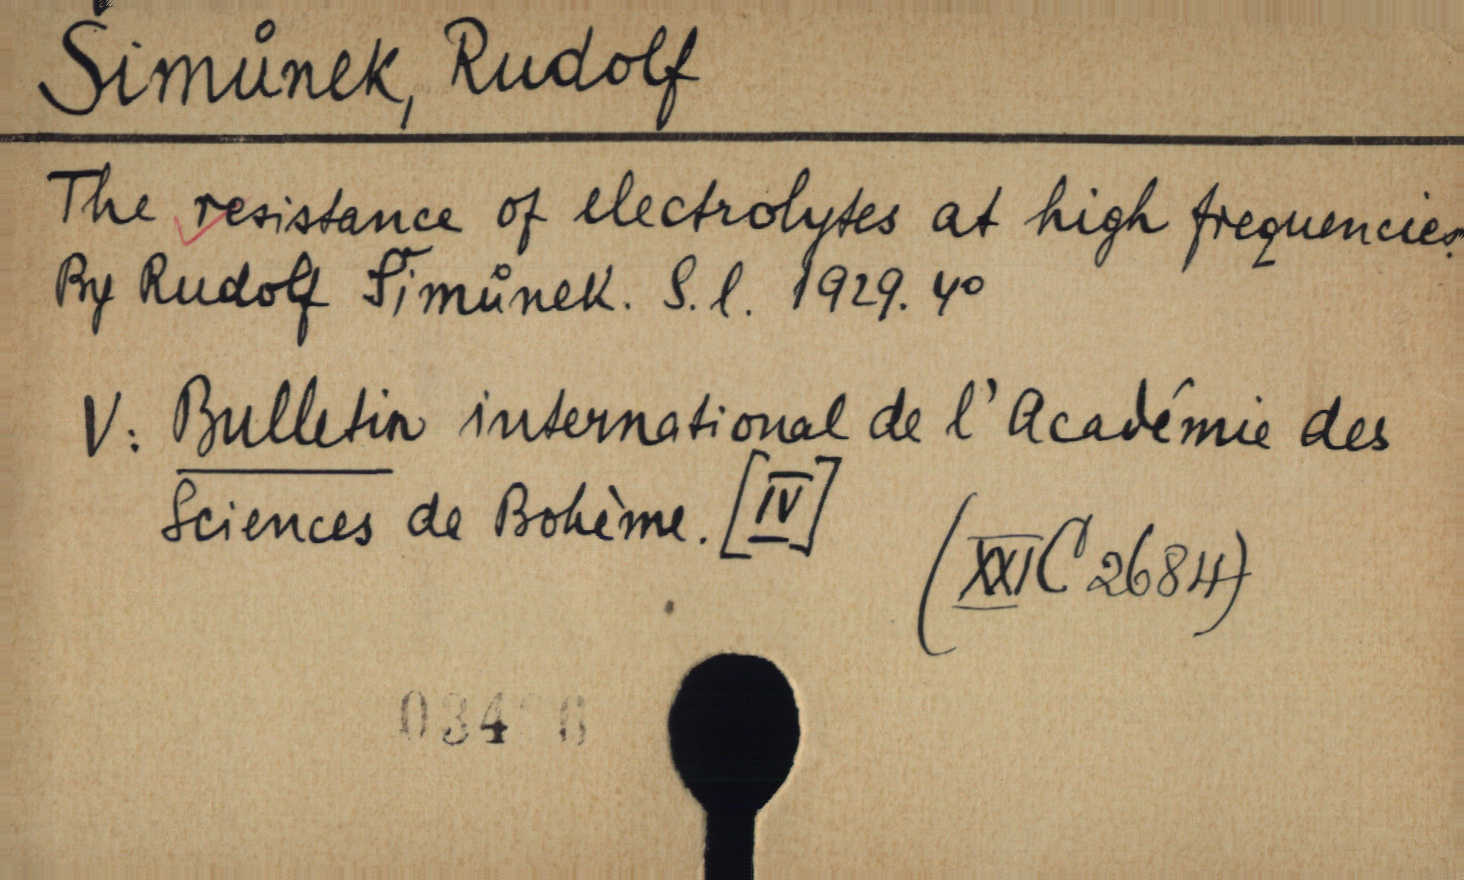 Šimůnek, Rudolf
The resistance of electrolytes at high frequencies.
By Rudolf Šimůnek. S. l. 1929. 4°
V: Bulletin international de l'Académie des
Sciences de Bohème. [IV]
(XXI C 2684)